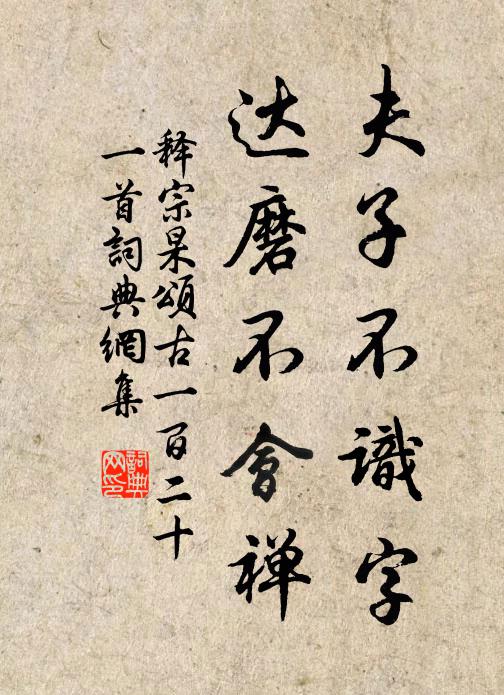 夫子不識字
达磨不會禅
释宗杲頌古一百二十
一首詞典網集
詞典
网印